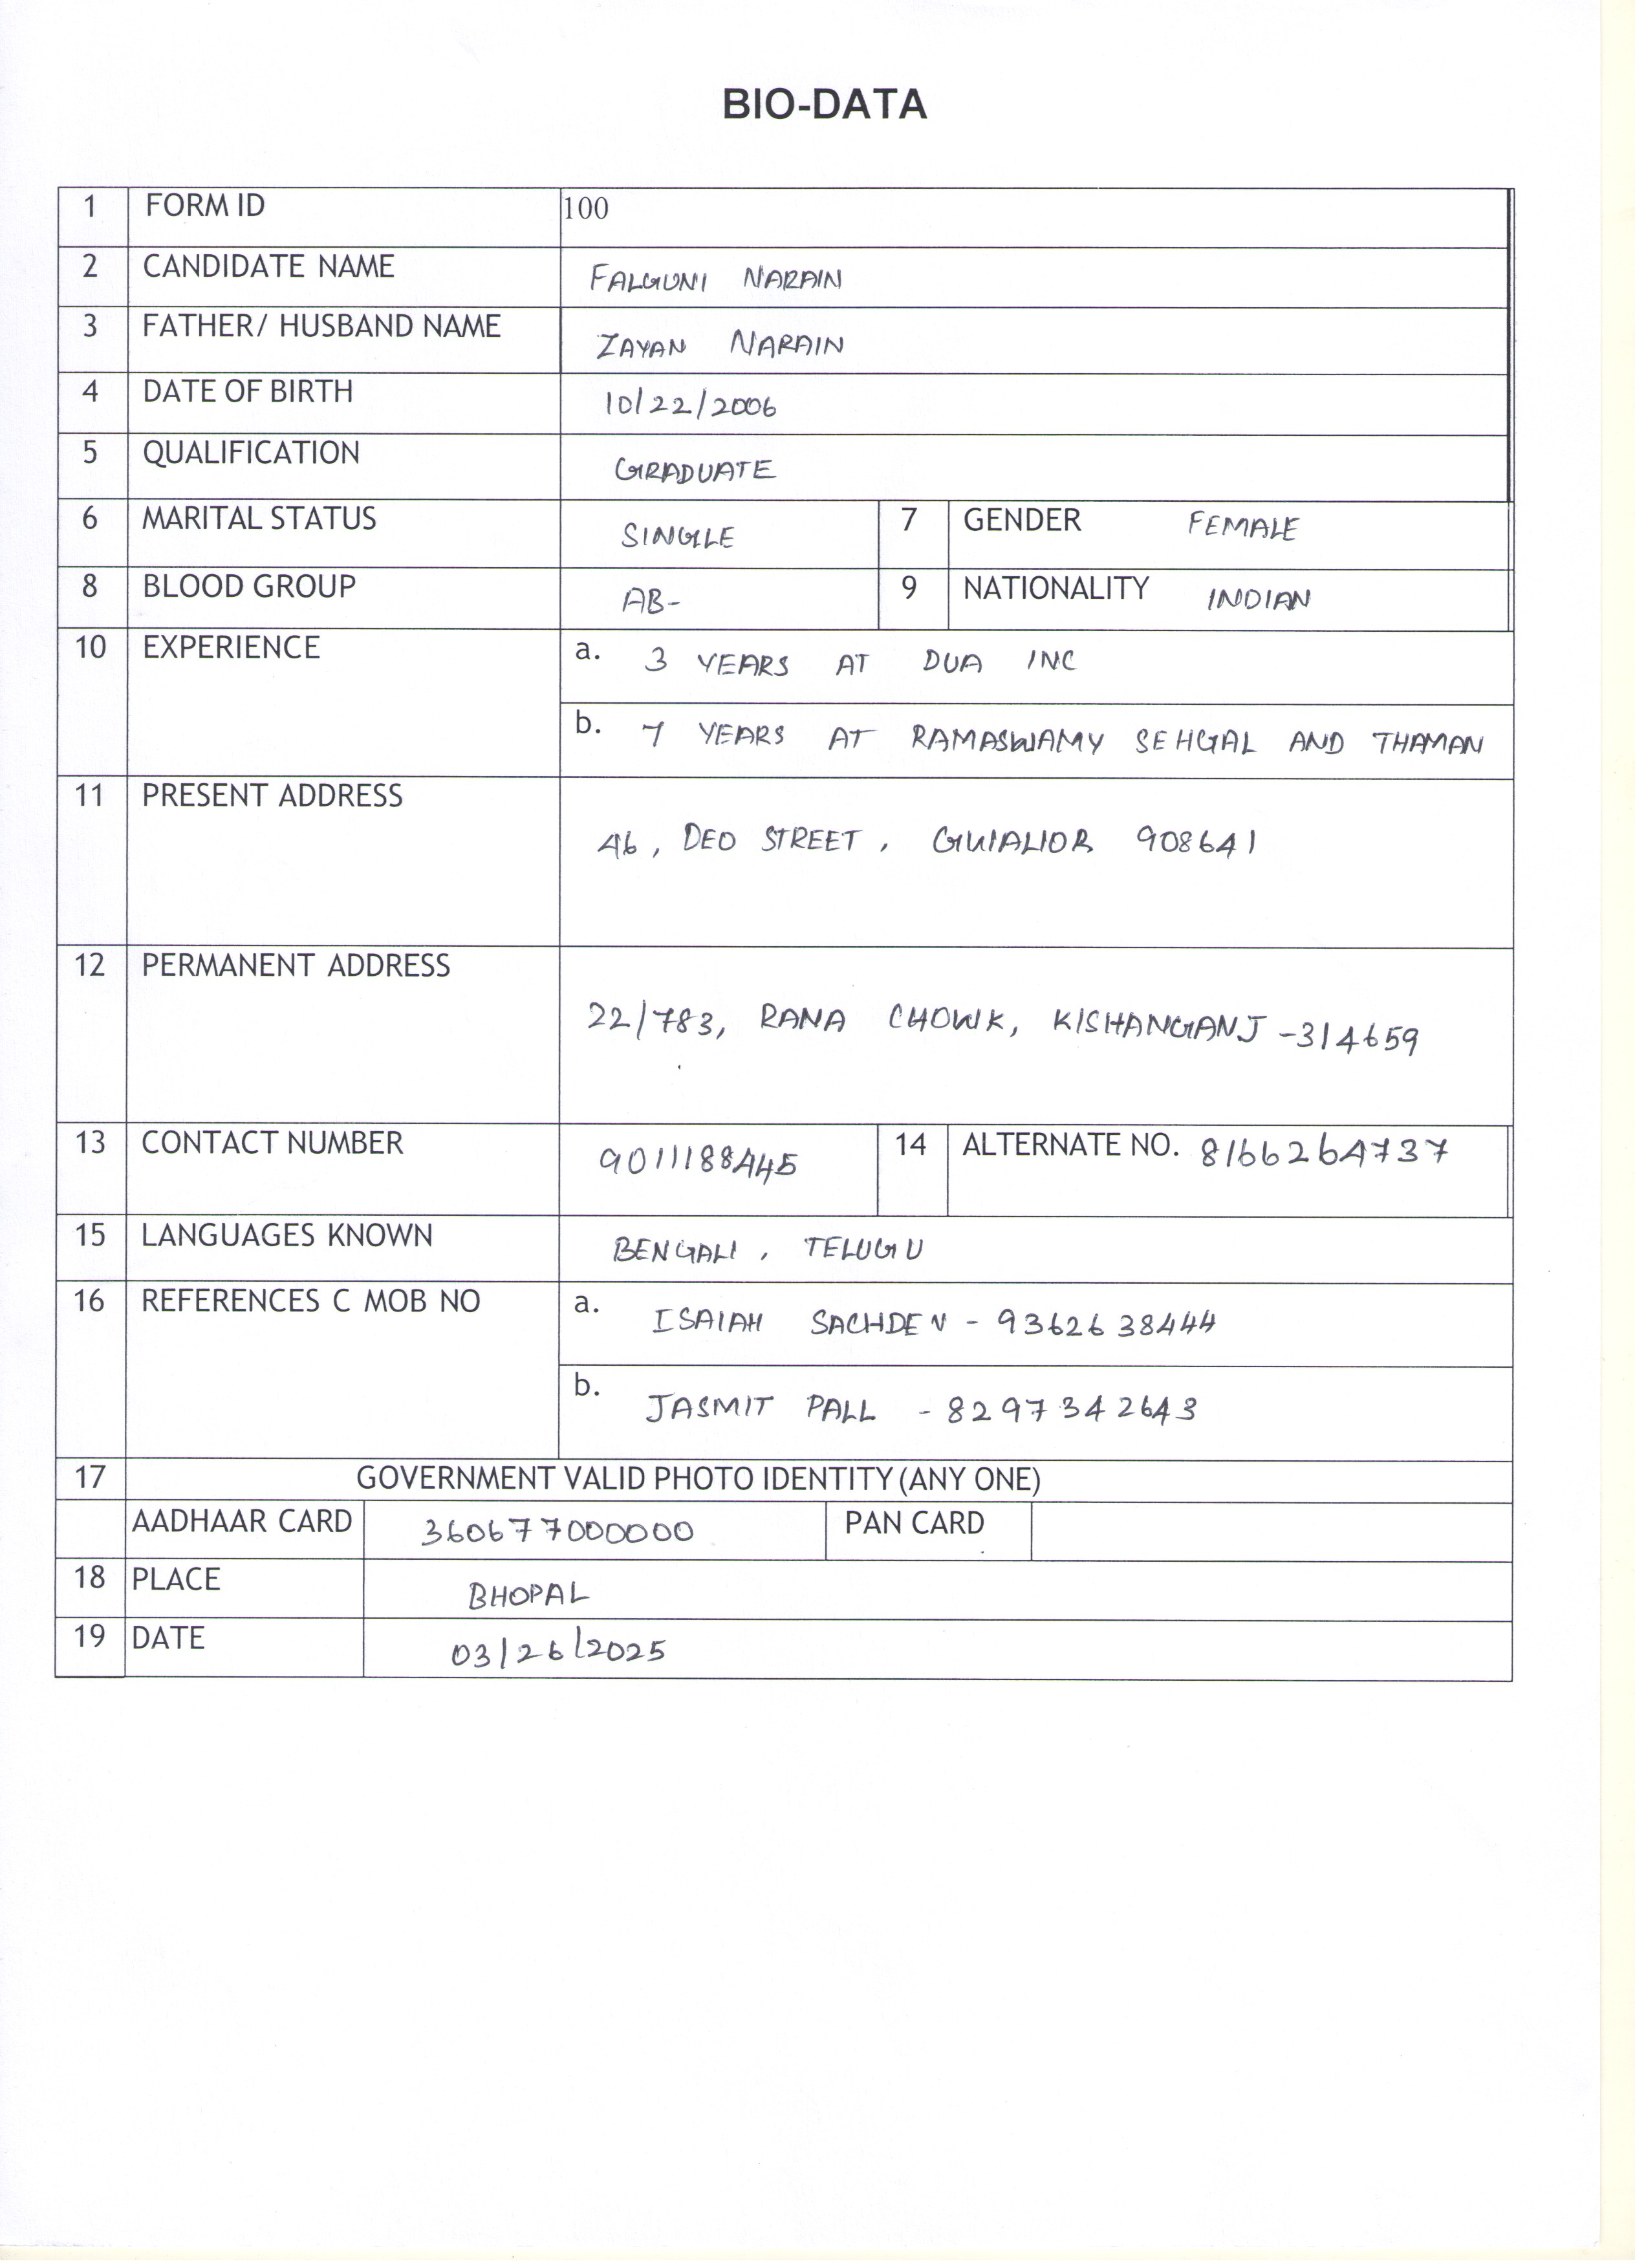 BIO-DATA
1 FORM ID 100
2 CANDIDATE NAME FALGUNI NARAIN
3 FATHER/ HUSBAND NAME ZAYAN NARAIN
4 DATE OF BIRTH 10/22/2006
5 QUALIFICATION GRADUATE
6 MARITAL STATUS SINGLE 7 GENDER FEMALE
8 BLOOD GROUP AB- 9 NATIONALITY INDIAN
10 EXPERIENCE a. 3 YEARS AT DUA INC
b. 7 YEARS AT RAMASWAMY SEHGAL AND THAMAN
11 PRESENT ADDRESS
46, DEO STREET, GWALIOR 908641
12 PERMANENT ADDRESS
22/783, RANA CHOWK, KISHANGANJ -314659
13 CONTACT NUMBER 9011188445 14 ALTERNATE NO. 8166264737
15 LANGUAGES KNOWN BENGALI, TELUGU
16 REFERENCES C MOB NO a. ISAIAH SACHDEV - 9362638444
b. JASMIT PALL - 8297342643
17 GOVERNMENT VALID PHOTO IDENTITY (ANY ONE)
AADHAAR CARD 360677000000 PAN CARD
18 PLACE BHOPAL
19 DATE 03/26/2025